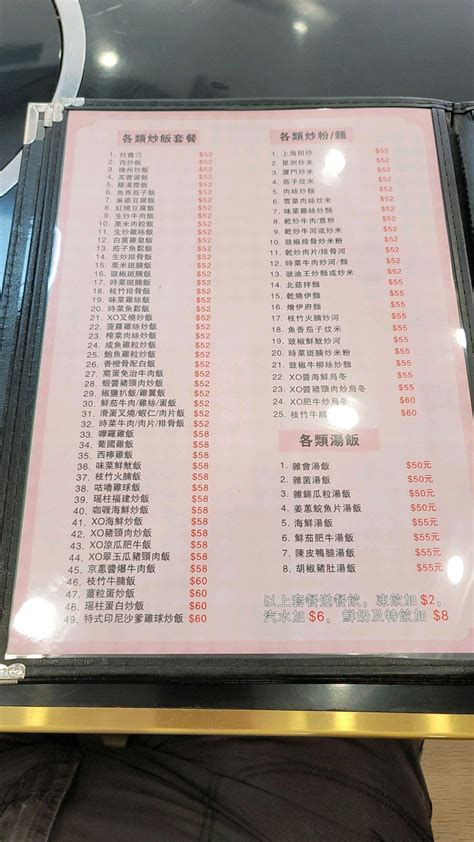 各類炒飯套餐
1. 炒會刀 $52
2. 西炒飯 $52
3. 揚州炒飯 $52
4. 芙蓉蛋飯 $52
5. 羅漢齋飯 $52
6. 魚香茄子飯 $52
7. 麻婆豆腐飯 $52
8. 紅燒豆腐飯 $52
9. 生炒牛肉飯 $52
10. 粟米肉粒飯 $52
11. 生炒雞絲飯 $52
12. 白菌雞皇飯 $52
13. 茄子魚鬆飯 $52
14. 生炒排骨飯 $52
15. 粟米斑腩飯 $52
16. 豉椒斑腩飯 $52
17. 時菜斑腩飯 $52
18. 枝竹排骨飯 $52
19. 味菜雞絲飯 $52
20. 時菜魚鬆飯 $52
21. XO叉燒炒飯 $52
22. 菠蘿雞絲炒飯 $52
23. 榨菜肉絲炒飯 $52
24. 咸魚雞粒炒飯 $52
25. 鮑魚雞粒炒飯 $52
26. 香橙骨配白飯 $52
27. 窩蛋免治牛肉飯 $52
28. 蝦醬豬頸肉炒飯 $52
29. 椒鹽扒飯/雞翼飯 $52
30. 鮮茄牛肉/雞絲/蛋飯 $52
31. 滑蛋叉燒/蝦仁/肉片飯 $52
32. 時菜牛肉/肉片/排骨飯 $52
33. 嚤囉雞飯 $58
34. 葡國雞飯 $58
35. 西檸雞飯 $58
36. 味菜鮮魷飯 $58
37. 枝竹火腩飯 $58
38. 咕嚕雞球飯 $58
39. 瑤柱福建炒飯 $58
40. 咖喱海鮮炒飯 $58
41. XO海鮮炒飯 $58
42. XO豬頸肉炒飯 $58
43. XO涼瓜肥牛飯 $58
44. XO翠玉瓜豬頸肉飯 $58
45. 京蔥醬爆牛肉飯 $58
46. 枝竹牛腩飯 $60
47. 薑粒蛋炒飯 $60
48. 瑤柱蛋白炒飯 $60
49. 特式印尼沙爹雞球炒飯 $60
各類炒粉/麵
1. 上海粗炒 $52
2. 星洲炒米 $52
3. 廈門炒米 $52
4. 茄子炆米 $52
5. 肉絲炒麵 $52
6. 雪菜肉絲炆米 $52
7. 味菜雞絲炒麵 $52
8. 乾炒牛肉/意粉 $52
9. 乾炒牛河或炒麵 $52
10. 豉椒排骨炒米粉 $52
11. 乾炒肉片/排骨河 $52
12. 時菜牛肉炒河/麵 $52
13. 豉油王炒麵或炒米 $52
14. 北菇拌麵 $55
15. 乾燒伊麵 $55
16. 燴伊府麵 $55
17. 枝竹火腩炒河 $55
18. 魚香茄子炆米 $55
19. 豉椒鮮魷炒河 $55
20. 時菜斑腩炒米粉 $55
21. 豉椒牛柳絲炒麵 $55
22. XO醬海鮮烏冬 $60
23. XO豬頸肉炒烏冬 $60
24. XO肥牛炒烏冬 $60
25. 枝竹牛腩 $60
各類湯飯
1. 雜會湯飯 $50元
2. 雜菌湯飯 $50元
3. 雜錦瓜粒湯飯 $50元
4. 姜蔥鯇魚片湯飯 $50元
5. 海鮮湯飯 $55元
6. 鮮茄肥牛湯飯 $55元
7. 陳皮鴨腿湯飯 $55元
8. 胡椒豬肚湯飯 $55元
以上套餐送餐飲，凍飲加 $2，
汽水加 $6，鮮奶及特飲加 $8